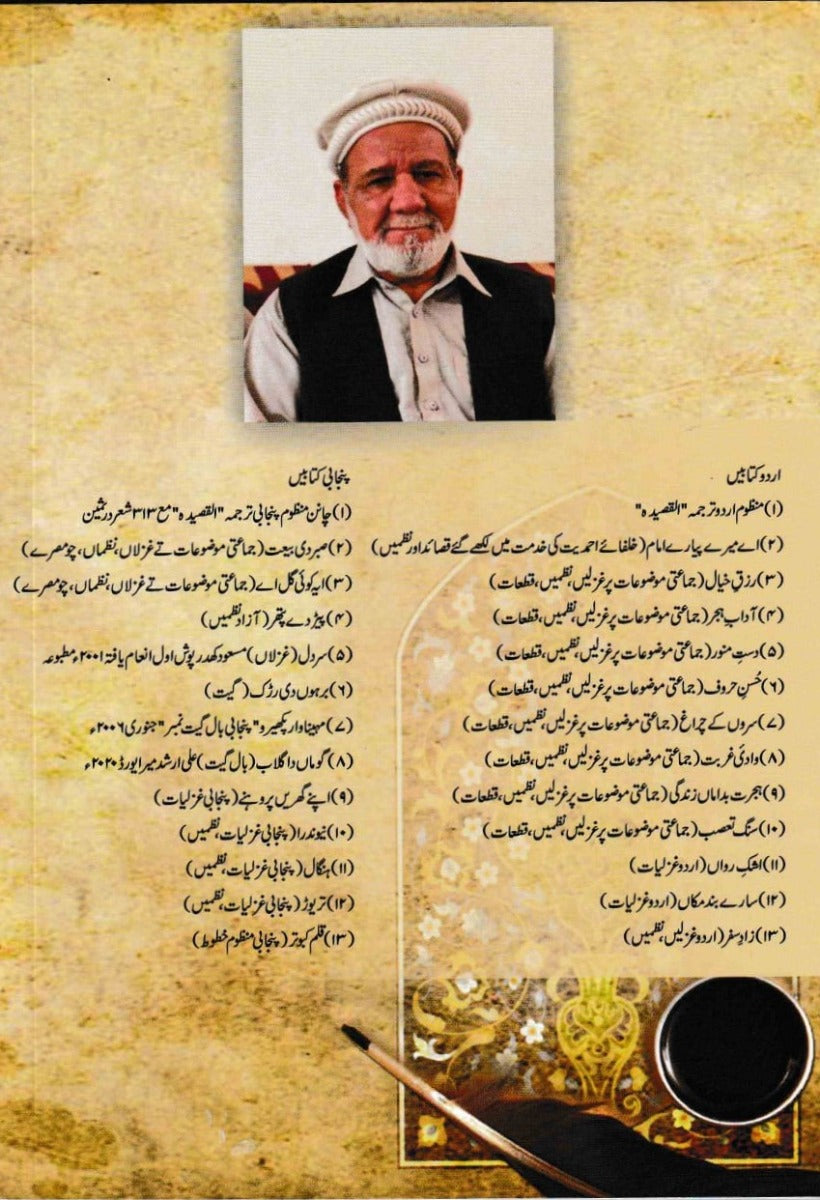 اردو کتابیں
(۱) منظوم اردو ترجمہ "القصیدہ"
(۲) اے میرے پیارے امام (خلفائے احمدیت کی خدمت میں لکھے گئے قصائد اور نظمیں)
(۳) رزقِ خیال (جماعتی موضوعات پر غزلیں، نظمیں، قطعات)
(۴) آدابِ ہجر (جماعتی موضوعات پر غزلیں، نظمیں، قطعات)
(۵) دستِ منور (جماعتی موضوعات پر غزلیں، نظمیں، قطعات)
(۶) حُسنِ حروف (جماعتی موضوعات پر غزلیں، نظمیں، قطعات)
(۷) سروں کے چراغ (جماعتی موضوعات پر غزلیں، نظمیں، قطعات)
(۸) وادیٔ غربت (جماعتی موضوعات پر غزلیں، نظمیں، قطعات)
(۹) ہجرت بداماں زندگی (جماعتی موضوعات پر غزلیں، نظمیں، قطعات)
(۱۰) سنگِ تعصب (جماعتی موضوعات پر غزلیں، نظمیں، قطعات)
(۱۱) اشکِ رواں (اردو غزلیات)
(۱۲) سارے بند مکاں (اردو غزلیات)
(۱۳) زادِ سفر (اردو غزلیں، نظمیں)
پنجابی کتابیں
(۱) چانن منظوم پنجابی ترجمہ "القصیدہ" مع ۳۱۳ شعر درثمین
(۲) صبر دی بیعت (جماعتی موضوعات تے غزلاں، نظماں، چومصرے)
(۳) ایہ کوئی گل اے (جماعتی موضوعات تے غزلاں، نظماں، چومصرے)
(۴) پیڑ دے پتھر (آزاد نظمیں)
(۵) سردل (غزلاں) مسعود کھدر پوش اول انعام یافتہ ۲۰۰۱ء مطبوعہ
(۶) برہوں دی رڑک (گیت)
(۷) مہینا وار پکھیرو "پنجابی بال گیت نمبر" جنوری ۲۰۰۶ء
(۸) گوماں دا گلاب (بال گیت) علی ارشد میر ایورڈ ۲۰۲۰ء
(۹) اپنے گھریں پروہنے (پنجابی غزلیات)
(۱۰) نیوندرا (پنجابی غزلیات، نظمیں)
(۱۱) ہنگال (پنجابی غزلیات، نظمیں)
(۱۲) تریوڑ (پنجابی غزلیات، نظمیں)
(۱۳) قلم کبوتر (پنجابی منظوم خطوط)